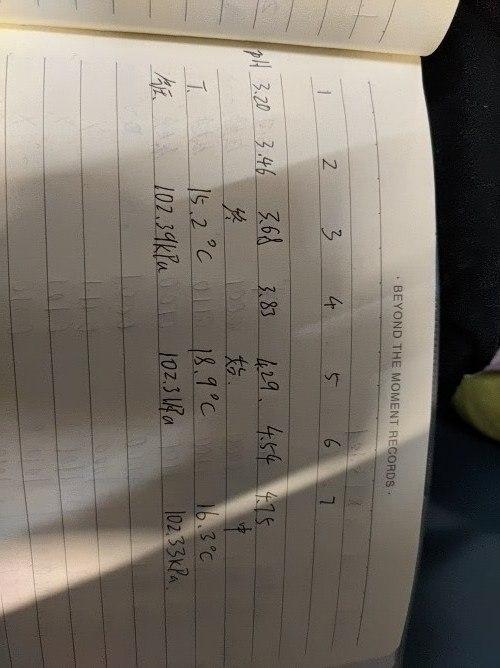 · BEYOND THE MOMENT RECORDS ·
1 2 3 4 5 6 7
pH 3.20 3.46 3.68 3.83 4.29. 4.54 4.75
始. 中
T. 15.2°C 18.9°C 16.3°C
102.39kPa 102.31kPa 102.33kPa.